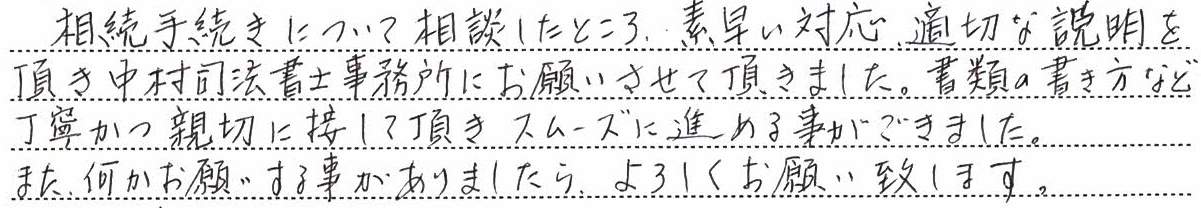 相続手続きについて相談したところ、素早い対応、適切な説明を
頂き中村司法書士事務所にお願いさせて頂きました。書類の書き方など
丁寧かつ親切に接して頂きスムーズに進める事ができました。
また、何かお願いする事がありましたら、よろしくお願い致します。